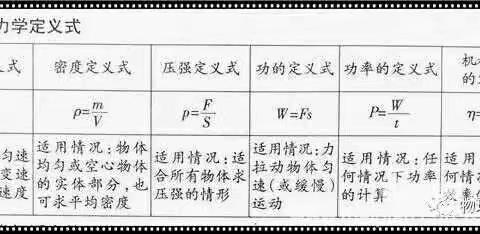 力学定义式
式 密度定义式 压强定义式 功的定义式 功率的定义式 机
的
ρ=m/V p=F/S W=Fs P=W/t η=
匀速 适用情况:物体 适用情况:适 适用情况:力 适用情况:任 适用情
变速 均匀或空心物体 合所有物体求 拉动物体匀 何情况下功率 何情况
速度 的实体部分,也 压强的情形 速(或缓慢) 的计算
可求平均密度 运动